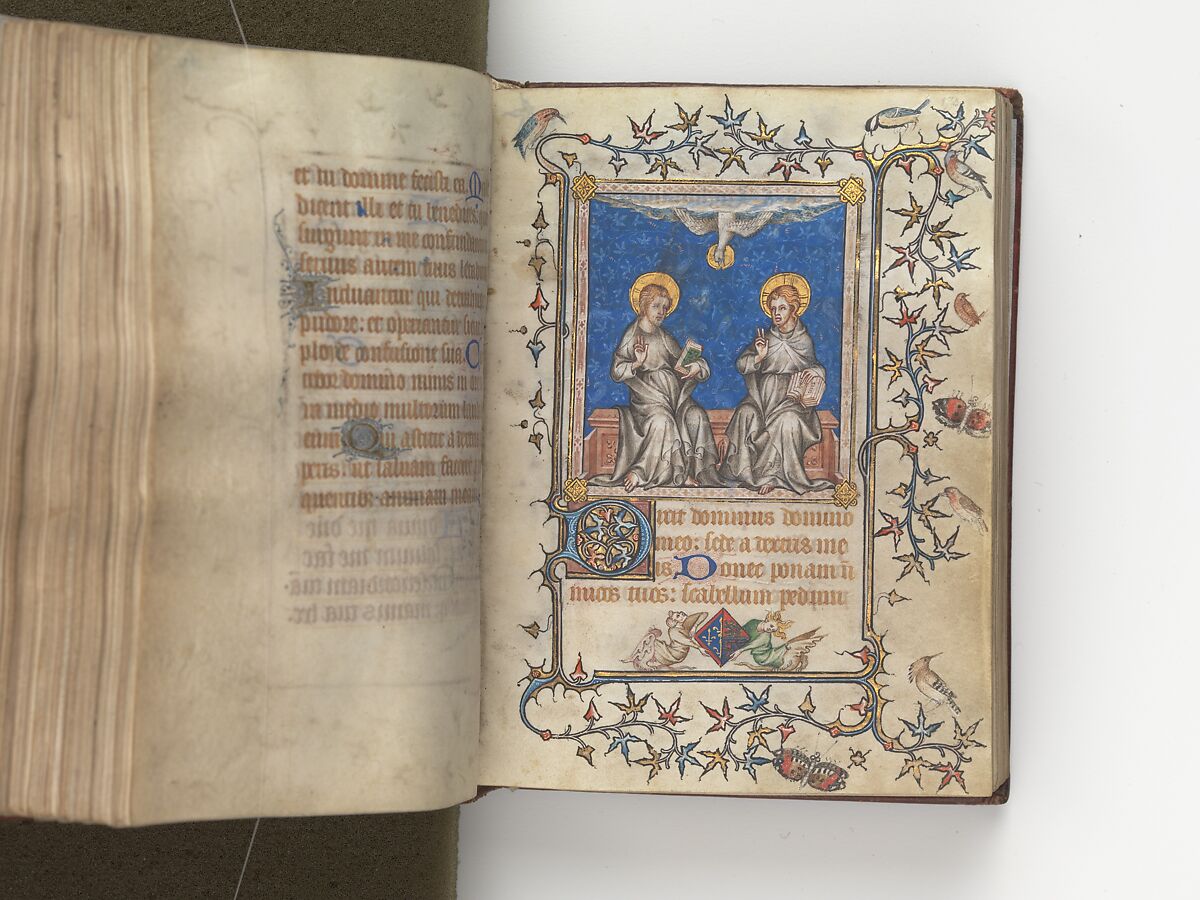 et tu domine fecisti ea M
dicent illi et tu benedices
surgunt in me confundan
servus autem tuus letab
Induantur qui detrahu
pudore: et operiantur sicu
ploide confusione sua. C
domino nimis in ore
in medio multorum laud
eum. Qui astitit a dextris
peris: ut salvam facere
quentibus animam mea
Dixit dominus domino
meo: sede a dextris me
is. Donec ponam ini
micos tuos: scabellum pedum